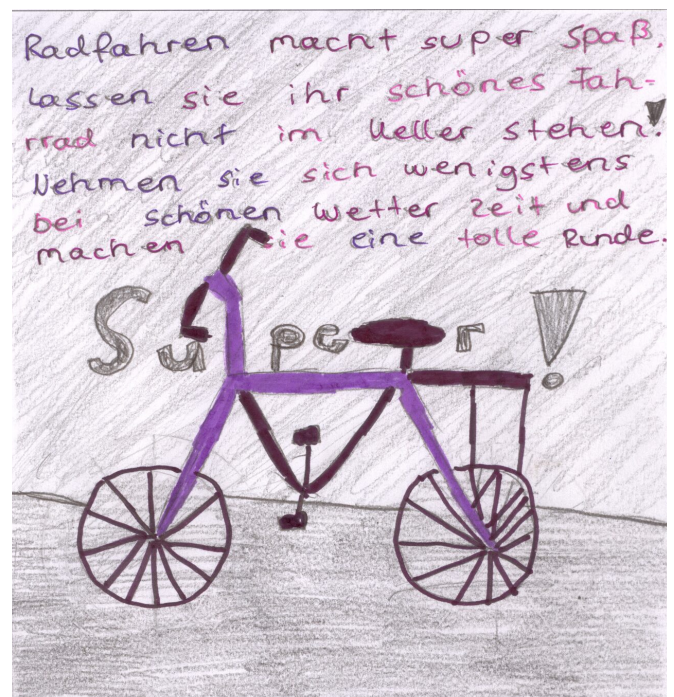 Radfahren macht super Spaß,
lassen sie ihr schönes Fah-
rrad nicht im Keller stehen!
Nehmen sie sich wenigstens
bei schönen Wetter Zeit und
machen sie eine tolle Runde.
Super!